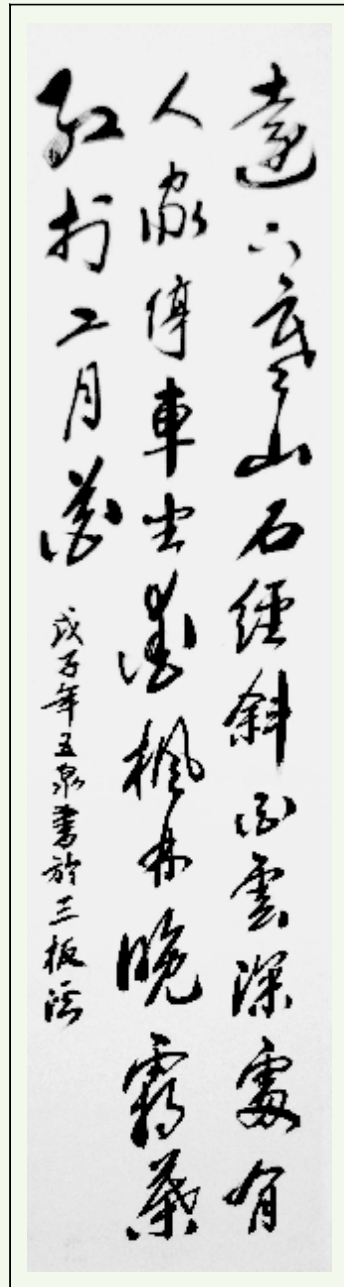 遠上寒山石經斜白雲深處有
人家停車坐愛楓林晚霜葉
紅於二月花
戊子年泉書於三板溪